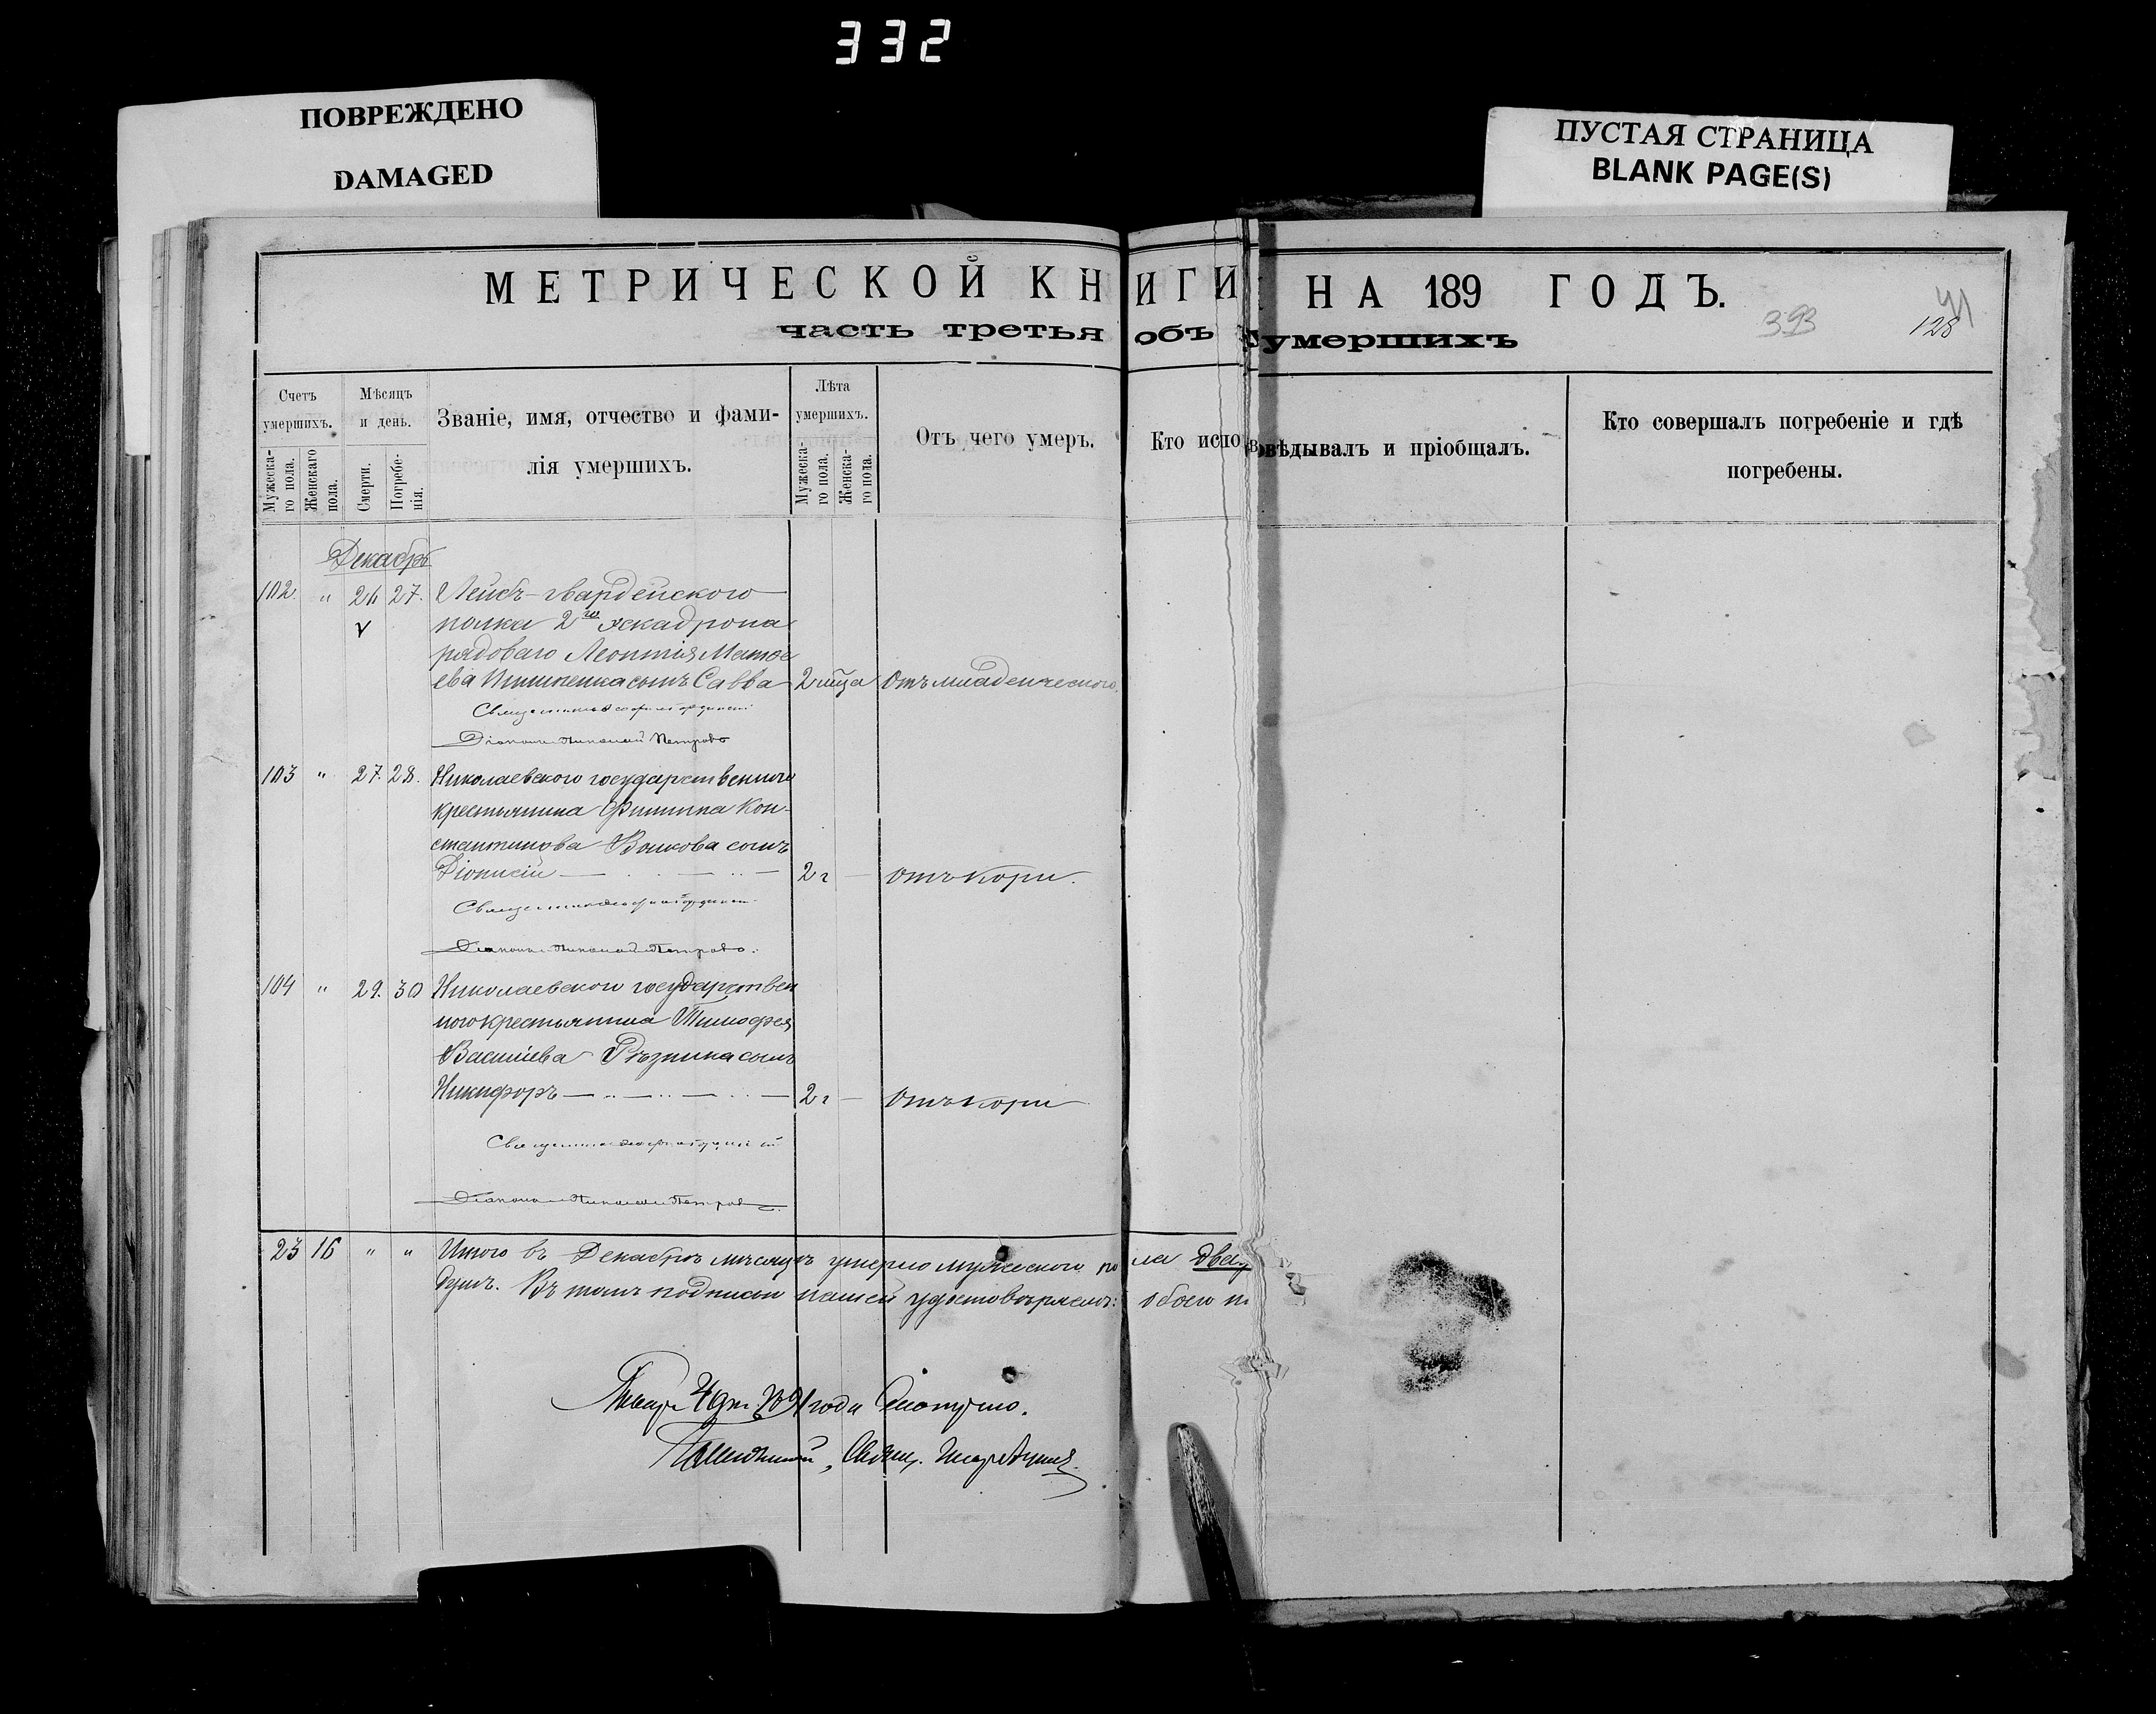 332
ПОВРЕЖДЕНО
DAMAGED
ПУСТАЯ СТРАНИЦА
BLANK PAGE(S)
МЕТРИЧЕСКОЙ КНИГИ НА 189 ГОДЪ.
часть третья объ умершихъ
393
41
128
Счетъ умершихъ.
Мужескаго пола.
Женскаго пола.
Мѣсяцъ и день.
Смерти.
Погребенія.
Званіе, имя, отчество и фамилія умершихъ.
Лѣта умершихъ.
Мужескаго пола.
Женскаго пола.
Отъ чего умеръ.
Кто испо
вѣдывалъ и пріобщалъ.
Кто совершалъ погребеніе и гдѣ
погребены.
Декабрь
102 " 26 27. Лейбъ-гвардейского
полка 2го эскадрона
рядоваго Леонтія Матве
ева сынъ Савва 2 мца Отъ младенческого.
Священникъ
Діаконъ Николай Петровъ
103 " 27. 28. Николаевского государственного
крестьянина Филипа Кон-
стантинова Волкова сынъ
Діонисій 2 г Отъ кори.
Священникъ
Діаконъ Николай Петровъ.
104 " 29. 30 Николаевского государствен
ного крестьянина Тимофея
Васильева Рѣзника сынъ
Никифоръ 2 г Отъ кори
Священникъ
Діаконъ Николай Петровъ
23 16 " " Итого въ Декабрѣ мѣсяцѣ умерло мужеского по ла два
душъ. Въ томъ подписом нашей удостовѣряемъ: обоего п
года
Свящ.